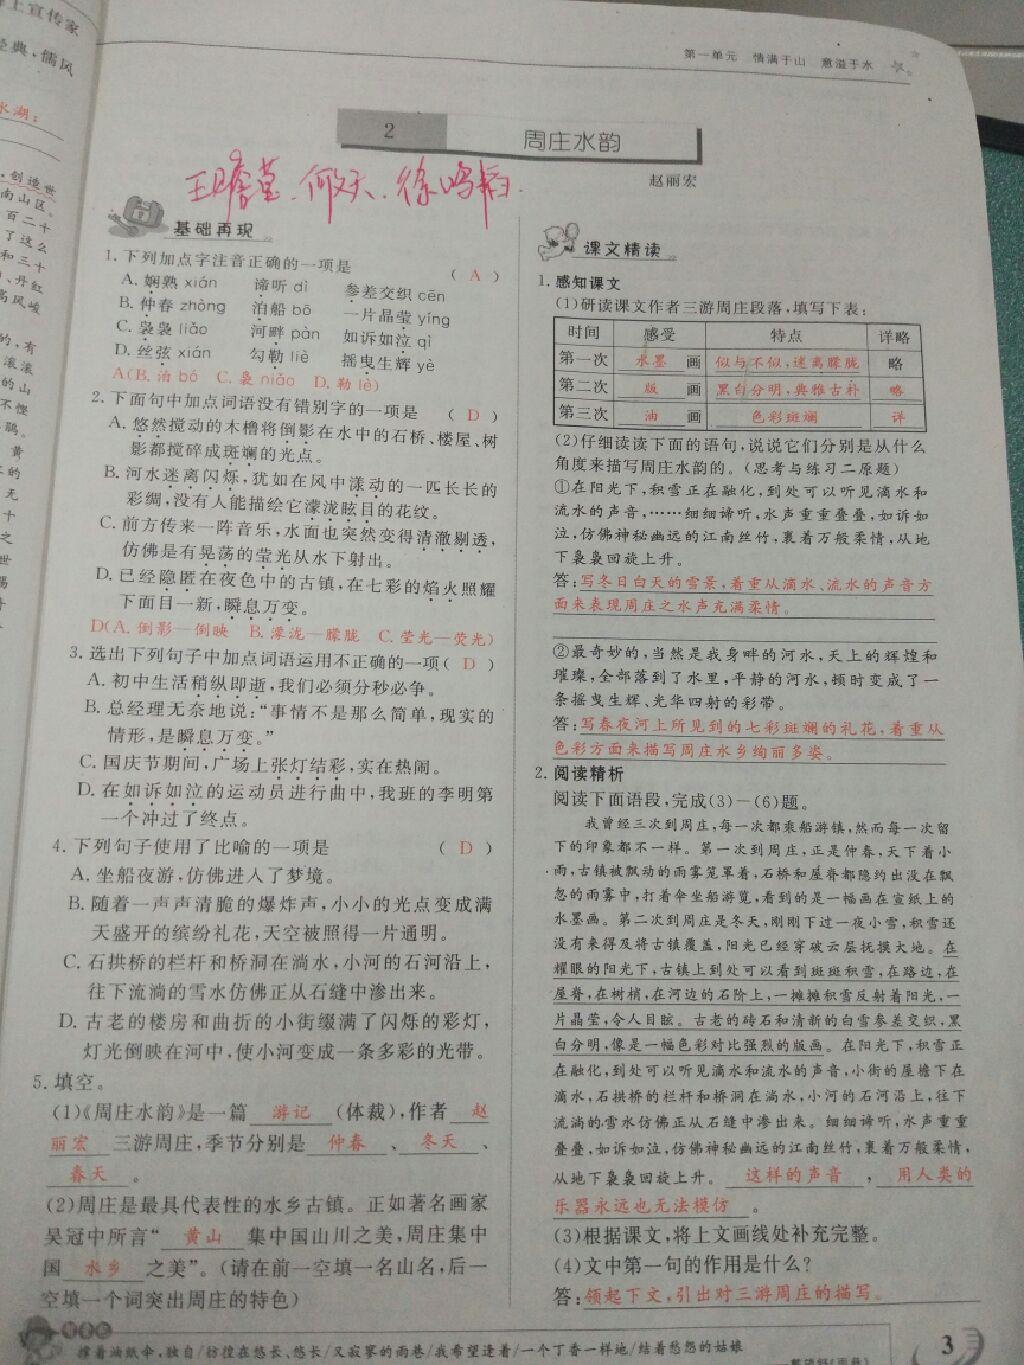 上宣传家
经典,儒风
水湖:
创造世
南山区。
百二十
了这么
和三十
、丹红
高风峻
的,有
滚滚
的山
不怪
鹏。
黄
的
无
十
之
世
第一单元 情满于山 意溢于水
2 周庄水韵
赵丽宏
基础再现
1. 下列加点字注音正确的一项是 ( A )
A. 娴熟 xián 谛听 dì 参差交织 cēn
B. 仲春 zhòng 泊船 bō 一片晶莹 yíng
C. 袅袅 liǎo 河畔 pàn 如诉如泣 qì
D. 丝弦 xián 勾勒 liè 摇曳生辉 yè
A(B. 泊 bó C. 袅 niǎo D. 勒 lè)
2. 下面句中加点词语没有错别字的一项是 ( D )
A. 悠然搅动的木橹将倒影在水中的石桥、楼屋、树
影都搅碎成斑斓的光点。
B. 河水迷离闪烁,犹如在风中漾动的一匹长长的
彩绸,没有人能描绘它濛泷眩目的花纹。
C. 前方传来一阵音乐,水面也突然变得清澈剔透,
仿佛是有晃荡的莹光从水下射出。
D. 已经隐匿在夜色中的古镇,在七彩的焰火照耀
下面目一新,瞬息万变。
D(A. 倒影—倒映 B. 濛泷—朦胧 C. 莹光—荧光)
3. 选出下列句子中加点词语运用不正确的一项( D )
A. 初中生活稍纵即逝,我们必须分秒必争。
B. 总经理无奈地说:“事情不是那么简单,现实的
情形,是瞬息万变。”
C. 国庆节期间,广场上张灯结彩,实在热闹。
D. 在如诉如泣的运动员进行曲中,我班的李明第
一个冲过了终点。
4. 下列句子使用了比喻的一项是 ( D )
A. 坐船夜游,仿佛进入了梦境。
B. 随着一声声清脆的爆炸声,小小的光点变成满
天盛开的缤纷礼花,天空被照得一片通明。
C. 石拱桥的栏杆和桥洞在淌水,小河的石河沿上,
往下流淌的雪水仿佛正从石缝中渗出来。
D. 古老的楼房和曲折的小街缀满了闪烁的彩灯,
灯光倒映在河中,使小河变成一条多彩的光带。
5. 填空。
(1)《周庄水韵》是一篇 游记 (体裁),作者 赵
丽宏 三游周庄,季节分别是 仲春 、 冬天 、
春天 。
(2)周庄是最具代表性的水乡古镇。正如著名画家
吴冠中所言“ 黄山 集中国山川之美,周庄集中
国 水乡 之美”。(请在前一空填一名山名,后一
空填一个词突出周庄的特色)
课文精读
1. 感知课文
(1)研读课文作者三游周庄段落,填写下表:
时间 感受 特点 详略
第一次 水墨 画 似与不似,迷离朦胧 略
第二次 版 画 黑白分明,典雅古朴 略
第三次 油 画 色彩斑斓 详
(2)仔细读读下面的语句,说说它们分别是从什么
角度来描写周庄水韵的。(思考与练习二原题)
①在阳光下,积雪正在融化,到处可以听见滴水和
流水的声音,……细细谛听,水声重重叠叠,如诉如
泣,仿佛神秘幽远的江南丝竹,裹着万般柔情,从地
下袅袅回旋上升。
答:写冬日白天的雪景,着重从滴水、流水的声音方
面来表现周庄之水声充满柔情。
②最奇妙的,当然是我身畔的河水,天上的辉煌和
璀璨,全部落到了水里,平静的河水,顿时变成了一
条摇曳生辉、光华四射的彩带。
答:写春夜河上所见到的七彩斑斓的礼花,着重从
色彩方面来描写周庄水乡绚丽多姿。
2. 阅读精析
阅读下面语段,完成(3)—(6)题。
我曾经三次到周庄,每一次都乘船游镇,然而每一次留
下的印象都不一样。第一次到周庄,正是仲春,天下着小
雨,古镇被飘动的雨雾笼罩着,石桥和屋脊都隐约出没在飘
忽的雨雾中,打着伞坐船游览,看到的是一幅画在宣纸上的
水墨画。第二次到周庄是冬天,刚刚下过一夜小雪,积雪还
没有来得及将古镇覆盖,阳光已经穿破云层抚摸大地。在
耀眼的阳光下,古镇上到处可以看到斑斑积雪,在路边,在
屋脊,在树梢,在河边的石阶上,一摊摊积雪反射着阳光,一
片晶莹,令人目眩。古老的砖石和清新的白雪参差交织,黑
白分明,像是一幅色彩对比强烈的版画。在阳光下,积雪正
在融化,到处可以听见滴水和流水的声音,小街的屋檐下在
滴水,石拱桥的栏杆和桥洞在淌水,小河的石河沿上,往下
流淌的雪水仿佛正从石缝中渗出来。细细谛听,水声重重
叠叠,如诉如泣,仿佛神秘幽远的江南丝竹,裹着万般柔情,
从地下袅袅回旋上升。 这样的声音 , 用人类的
乐器永远也无法模仿 。
(3)根据课文,将上文画线处补充完整。
(4)文中第一句的作用是什么?
答:领起下文,引出对三游周庄的描写。
撑着油纸伞,独自/彷徨在悠长、悠长/又寂寥的雨巷/我希望逢着/一个丁香一样地/结着愁怨的姑娘
3